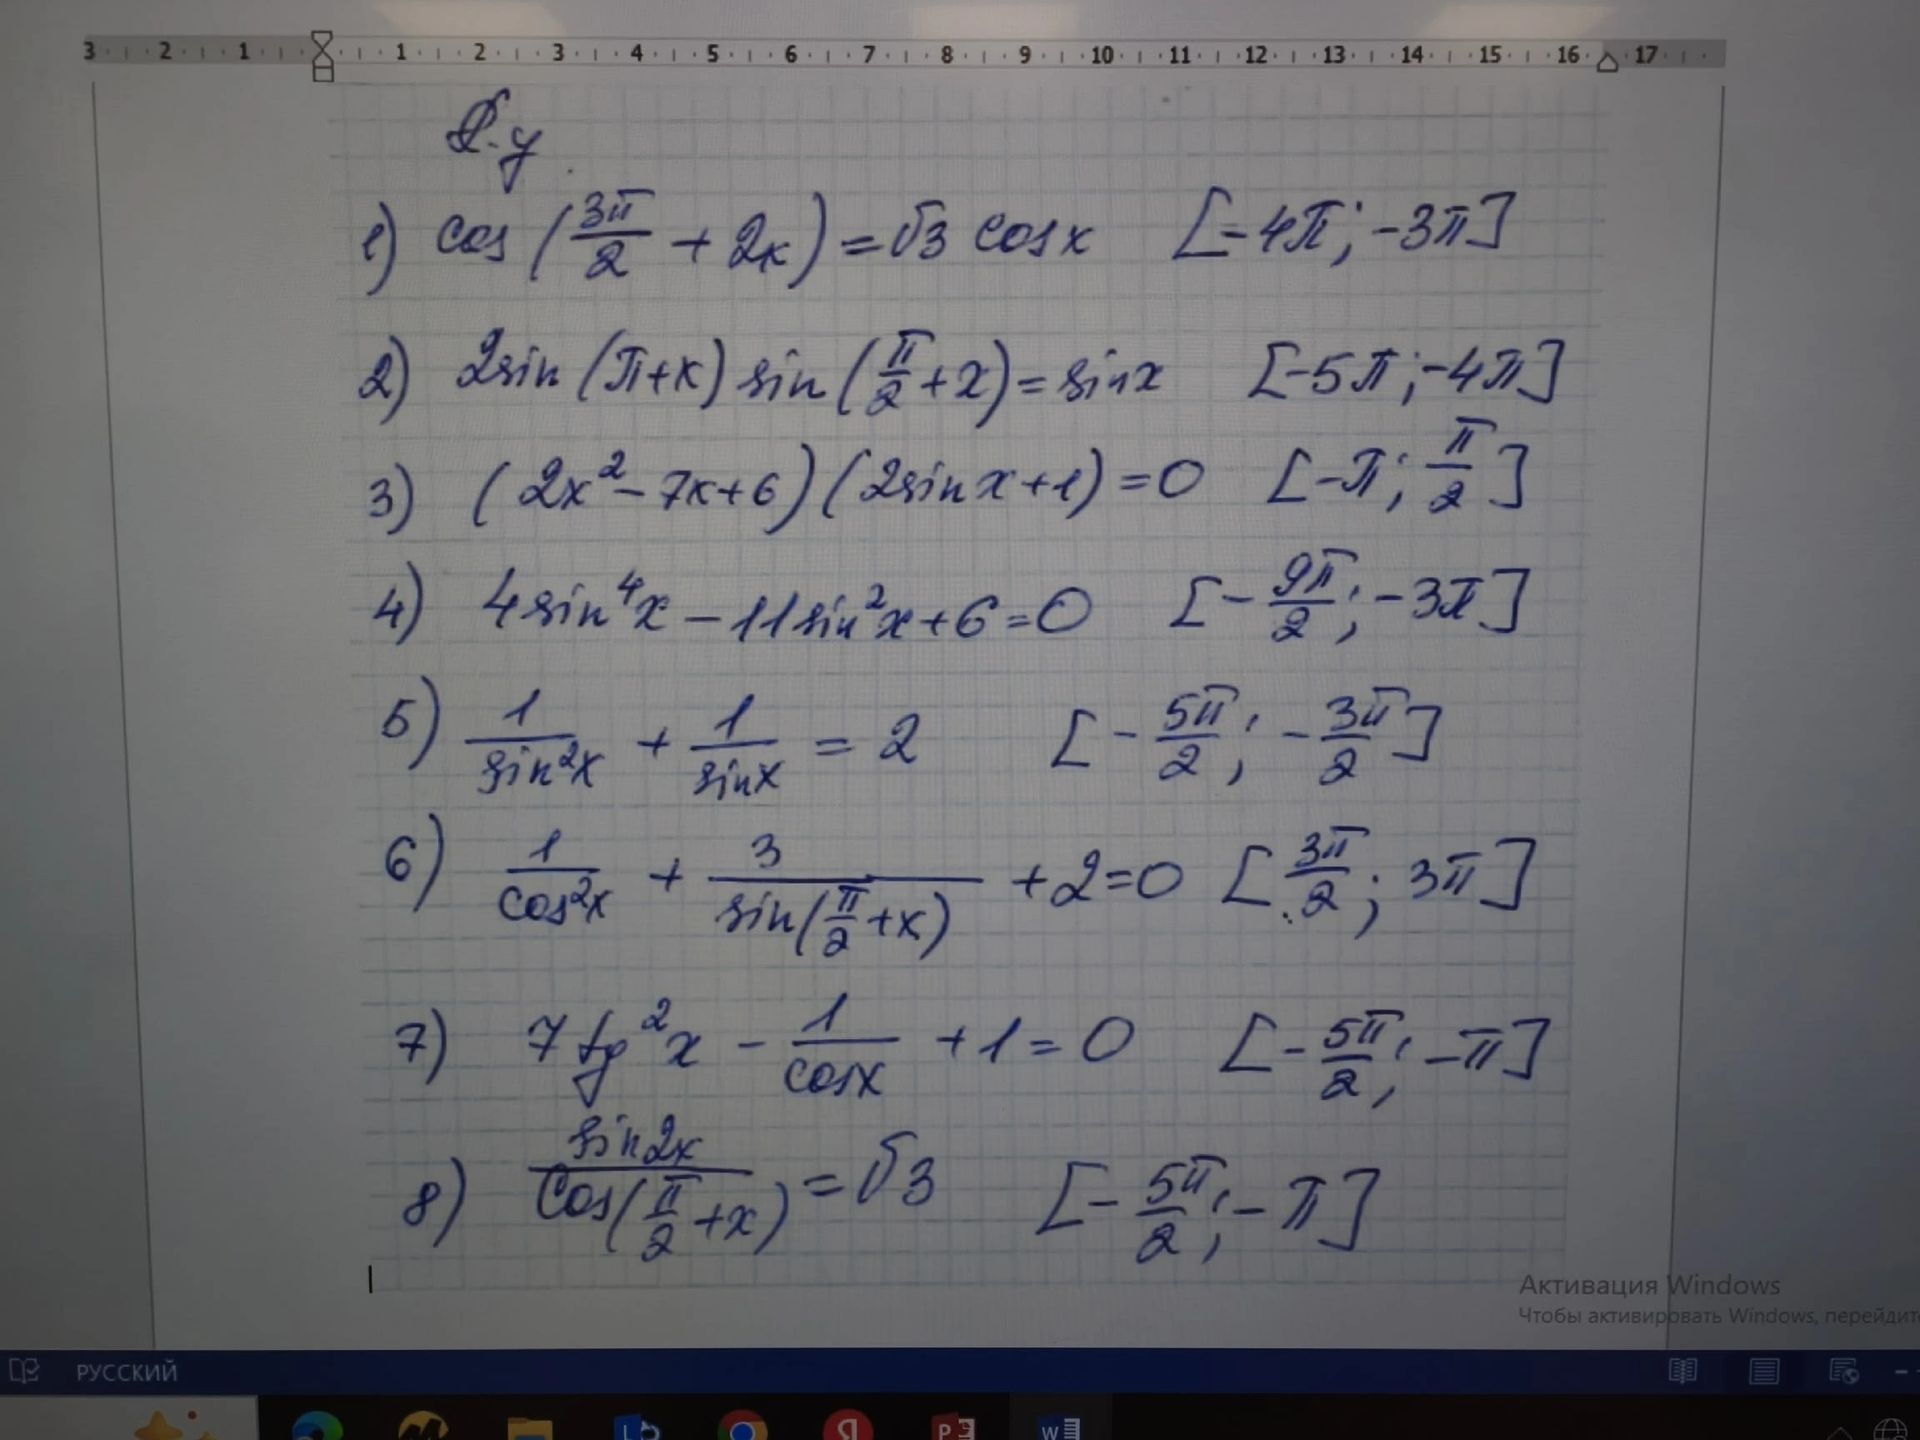 3 2 1 1 2 3 4 5 6 7 8 9 10 11 12 13 14 15 16 17
Д.у
1) cos(3π/2 + 2x) = √3 cosx [-4π; -3π]
2) 2sin(π+x) sin(π/2+x) = sinx [-5π; -4π]
3) (2x²-7x+6)(2sinx+1)=0 [-π; π/2]
4) 4sin⁴x - 11sin²x+6=0 [-9π/2; -3π]
5) 1/sin²x + 1/sinx = 2 [-5π/2; -3π/2]
6) 1/cos²x + 3/sin(π/2+x) +2=0 [3π/2; 3π]
7) 7tg²x - 1/cosx +1=0 [-5π/2; -π]
8) sin2x/cos(π/2+x) = √3 [-5π/2; -π]
Активация Windows
Чтобы активировать Windows, перейдит
РУССКИЙ